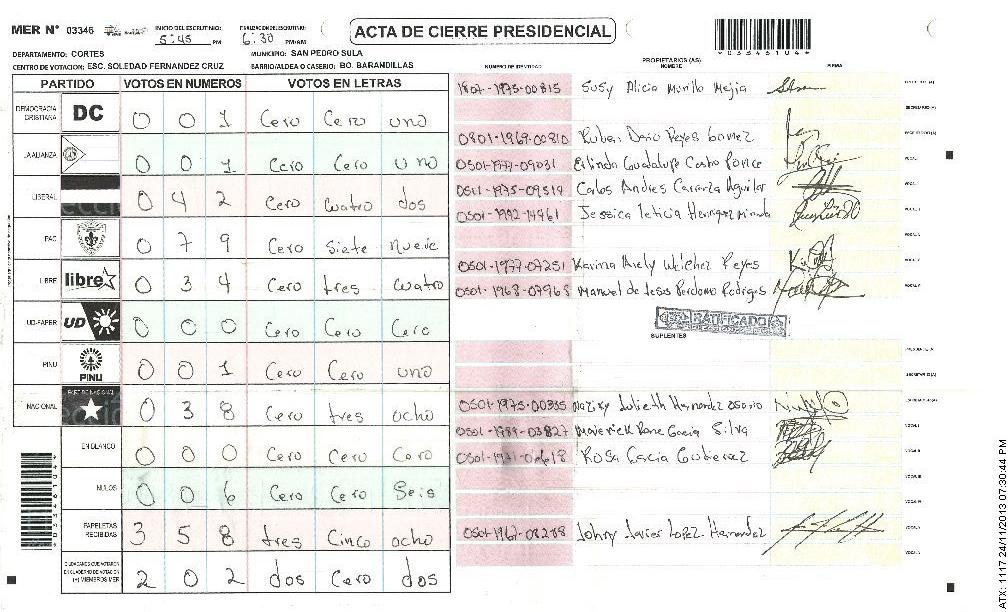 MER N° 03346 INICIO DEL ESCRUTINIO: 5:45 PM FINALIZACION DEL ESCRUTINIO: 6:30 PM/AM
ACTA DE CIERRE PRESIDENCIAL
DEPARTAMENTO: CORTES MUNICIPIO: SAN PEDRO SULA
CENTRO DE VOTACION: ESC. SOLEDAD FERNANDEZ CRUZ BARRIO/ALDEA O CASERIO: BO. BARANDILLAS
PARTIDO VOTOS EN NUMEROS VOTOS EN LETRAS
DEMOCRACIA CRISTIANA DC 0 0 1 Cero Cero uno
LA ALIANZA 0 0 1 Cero Cero uno
LIBERAL 0 4 2 Cero cuatro dos
PAC 0 7 9 Cero Siete nueve
LIBRE libre 0 3 4 Cero tres cuatro
UD-FAPER UD 0 0 0 Cero Cero Cero
PINU PINU 0 0 1 Cero Cero uno
NACIONAL PARTIDO NACIONAL 0 3 8 Cero tres ocho
EN BLANCO 0 0 0 Cero Cero Cero
NULOS 0 0 6 Cero Cero Seis
PAPELETAS RECIBIDAS 3 5 8 tres Cinco ocho
CIUDADANOS QUE VOTARON EN CUADERNO DE VOTACION (+) MIEMBROS MER 2 0 2 dos Cero dos
PROPIETARIOS (AS)
NUMERO DE IDENTIDAD NOMBRE FIRMA
1807-1975-00815 Susy Alicia Murillo Mejia
0801-1969-00810 Ruben Dario Reyes Gomez
0501-1977-09031 Erlinda Guadalupe Castro Ponce
0511-1975-09519 Carlos Andres Carranza Aguilar
0501-1992-14461 Jessica leticia Henriquez Miranda
0501-1977-07251 Karina Arely Welchez Reyes
0501-1968-07968 Manuel de Jesus Perdomo Rodrigas
RATIFICADO
SUPLENTES
0501-1975-00355 Julieth Hernandez osorio
0501-1989-03827 Maverick Rene Garcia Silva
ROSA Garcia Gutierrez
0501-1967-08288 Johny Javier Lopez Hernandez
ATX: 1117 24/11/2013 07:30:44 PM